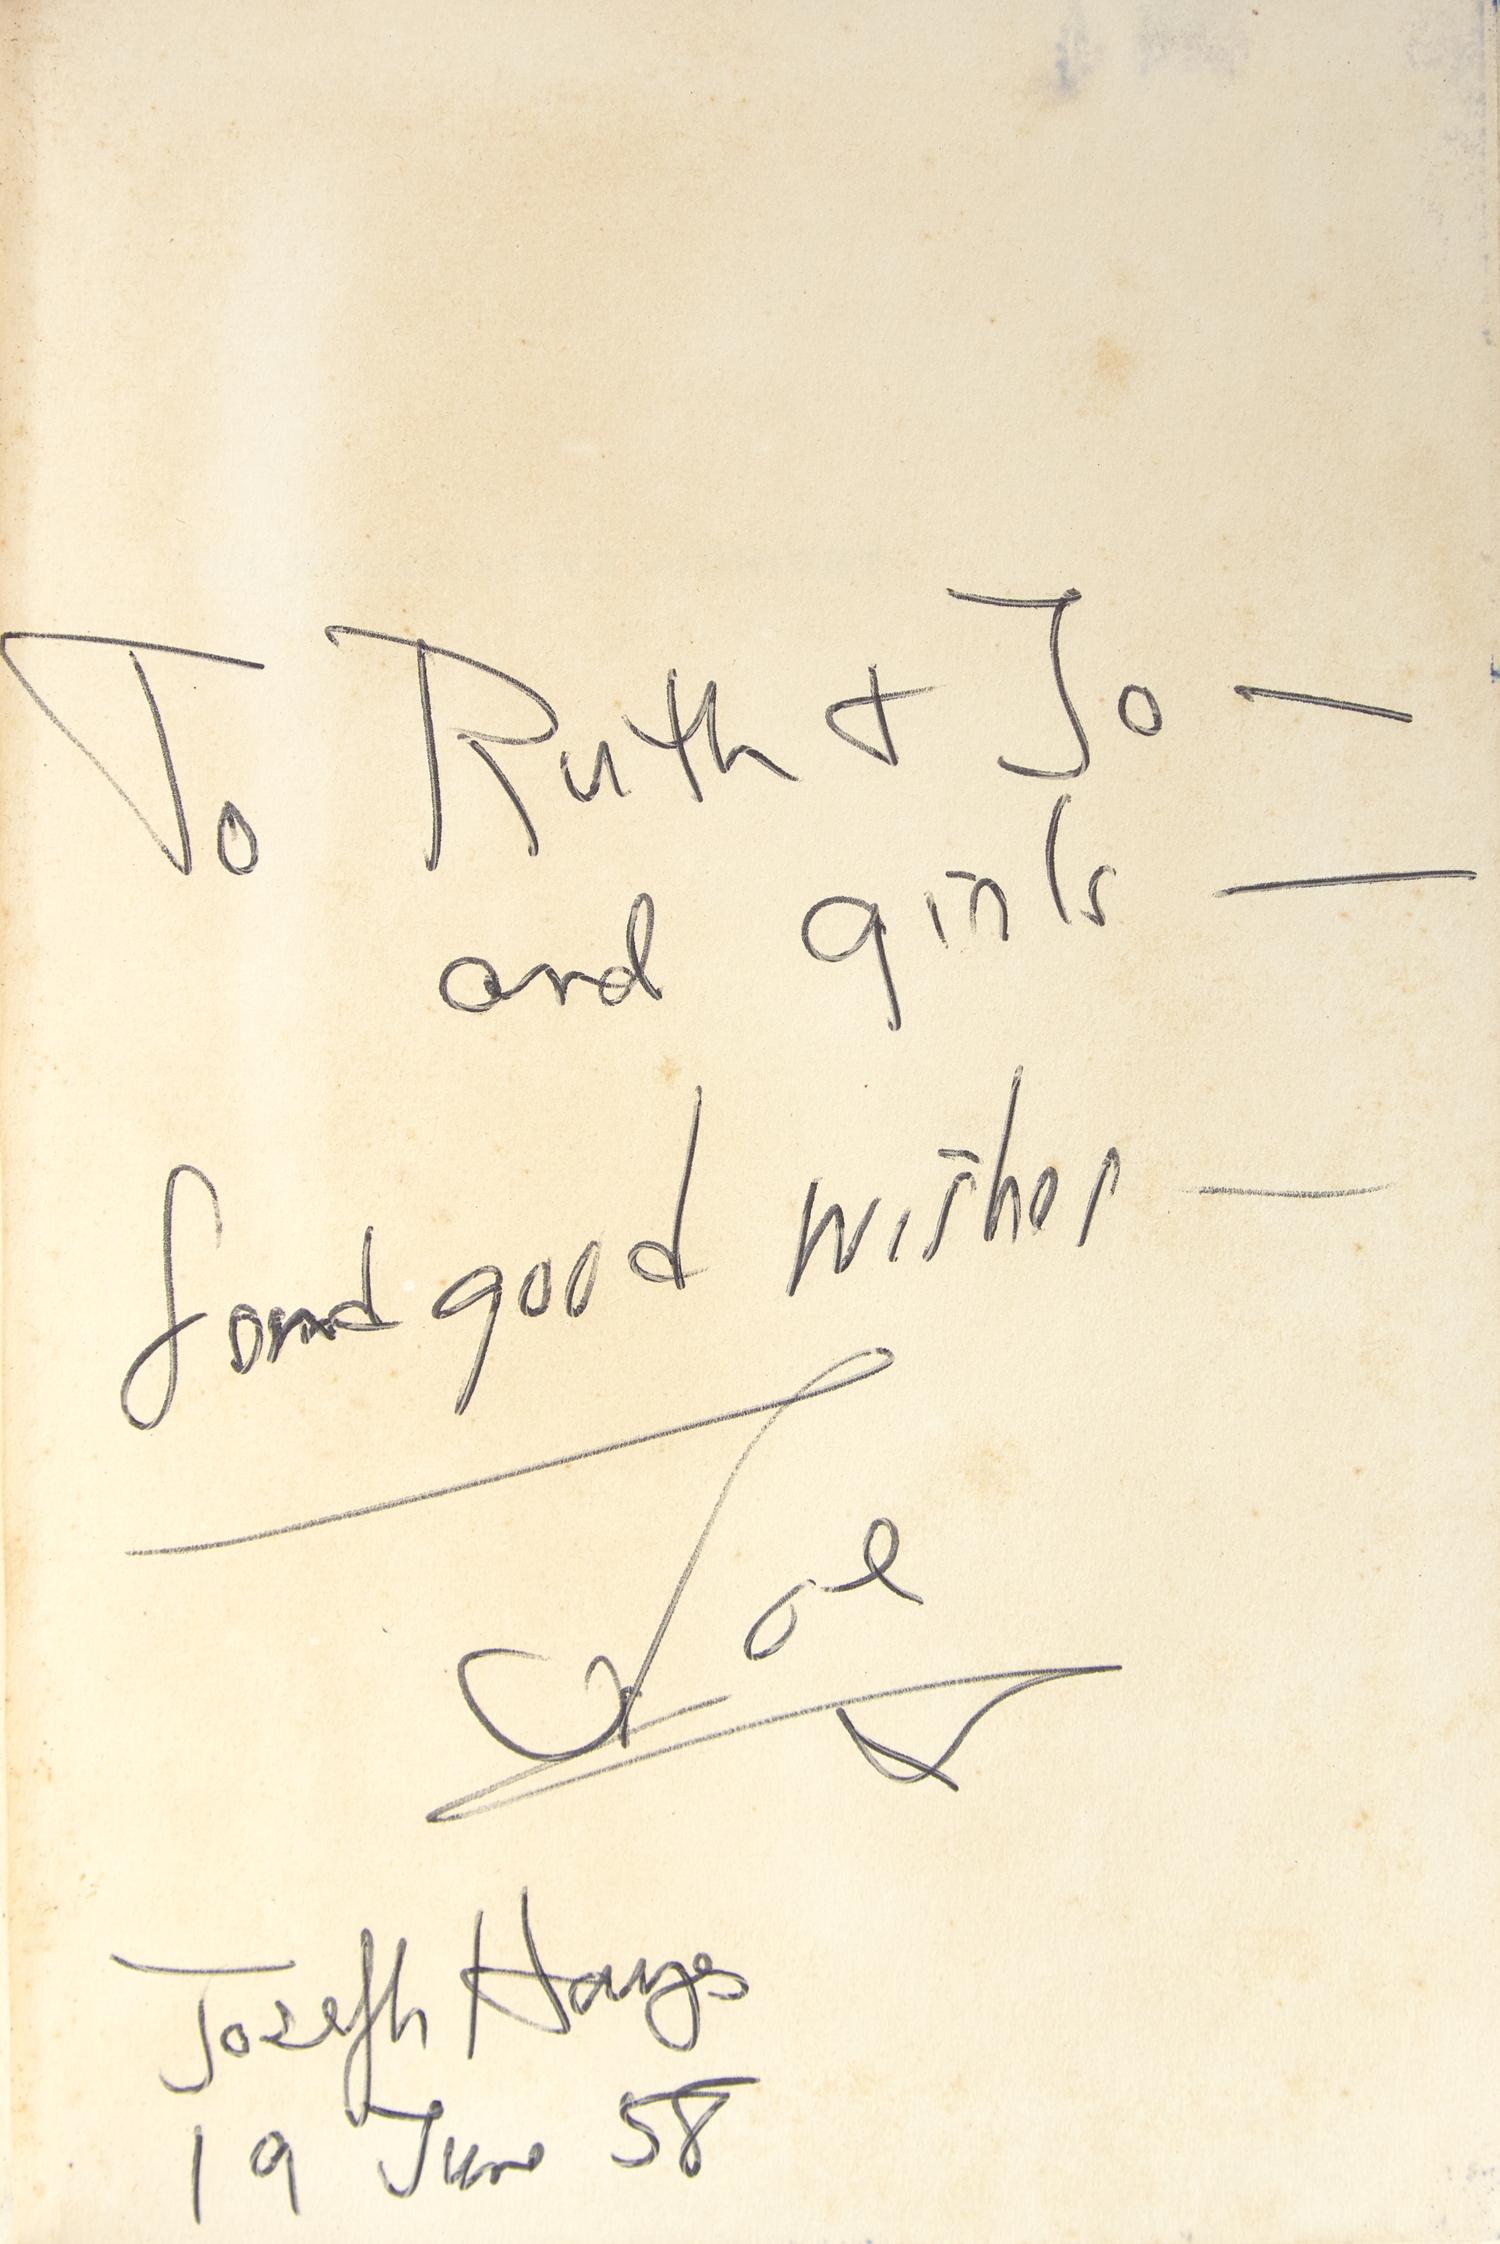 To Ruth + Jo —
and girls —
fond good wishes —
Joe
Joseph Hayes
19 June 58